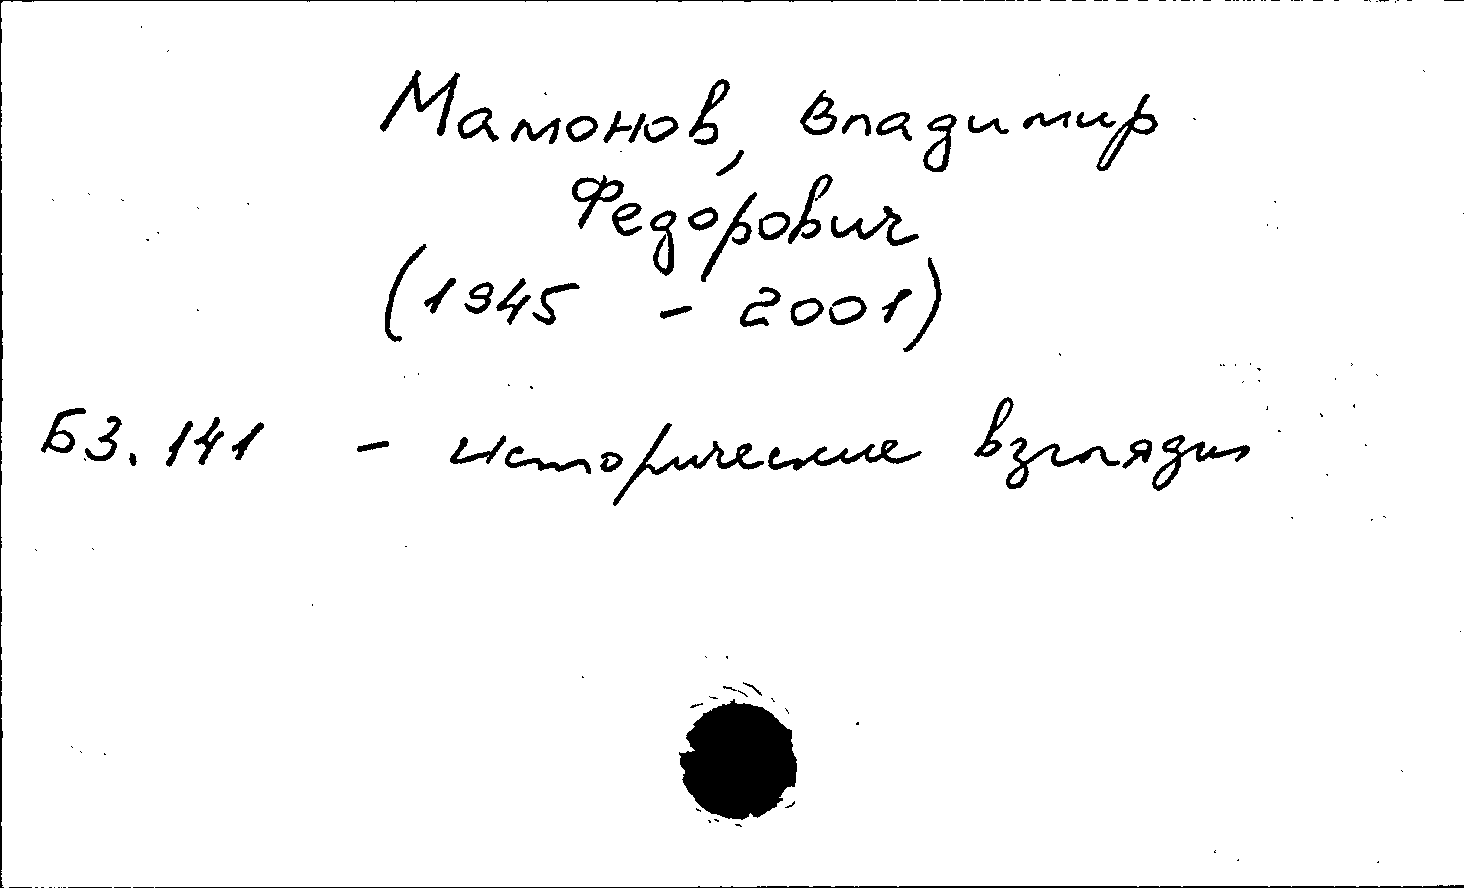 Мамонов, Владимир
Федорович
(1945 - 2001)
Б3.141 - исторические взгляды